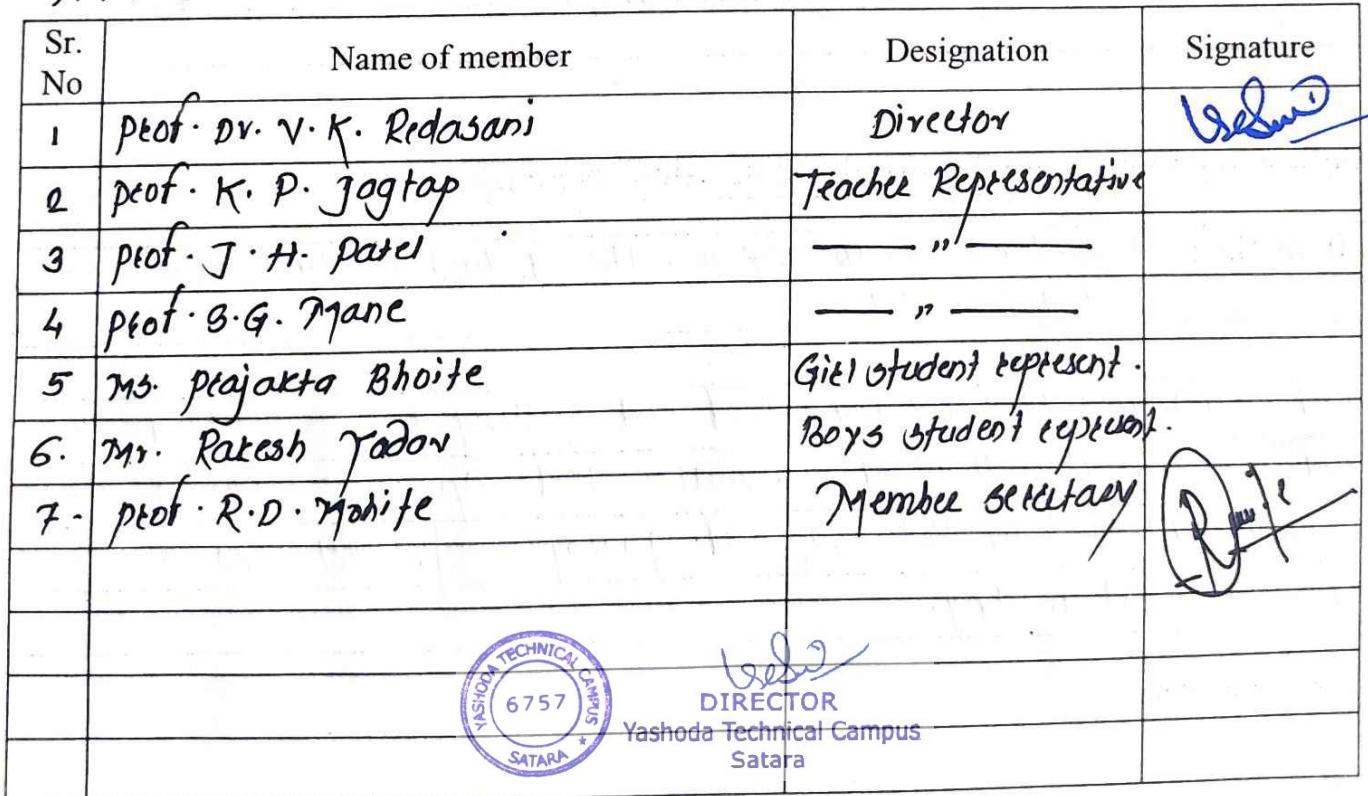 Sr. No Name of member Designation Signature
1 Prof. Dr. V. K. Redasani Director
2 Prof. K. P. Jagtap Teacher Representative
3 Prof. J. H. Patel —— " ——
4 Prof. S. G. Mane —— " ——
5 Ms. Prajakta Bhoite Girl student represent.
6. Mr. Rakesh Yadav Boys student represent.
7. Prof. R. D. Mohite Member secretary
YASHODA TECHNICAL CAMPUS
6757
SATARA
DIRECTOR
Yashoda Technical Campus
Satara